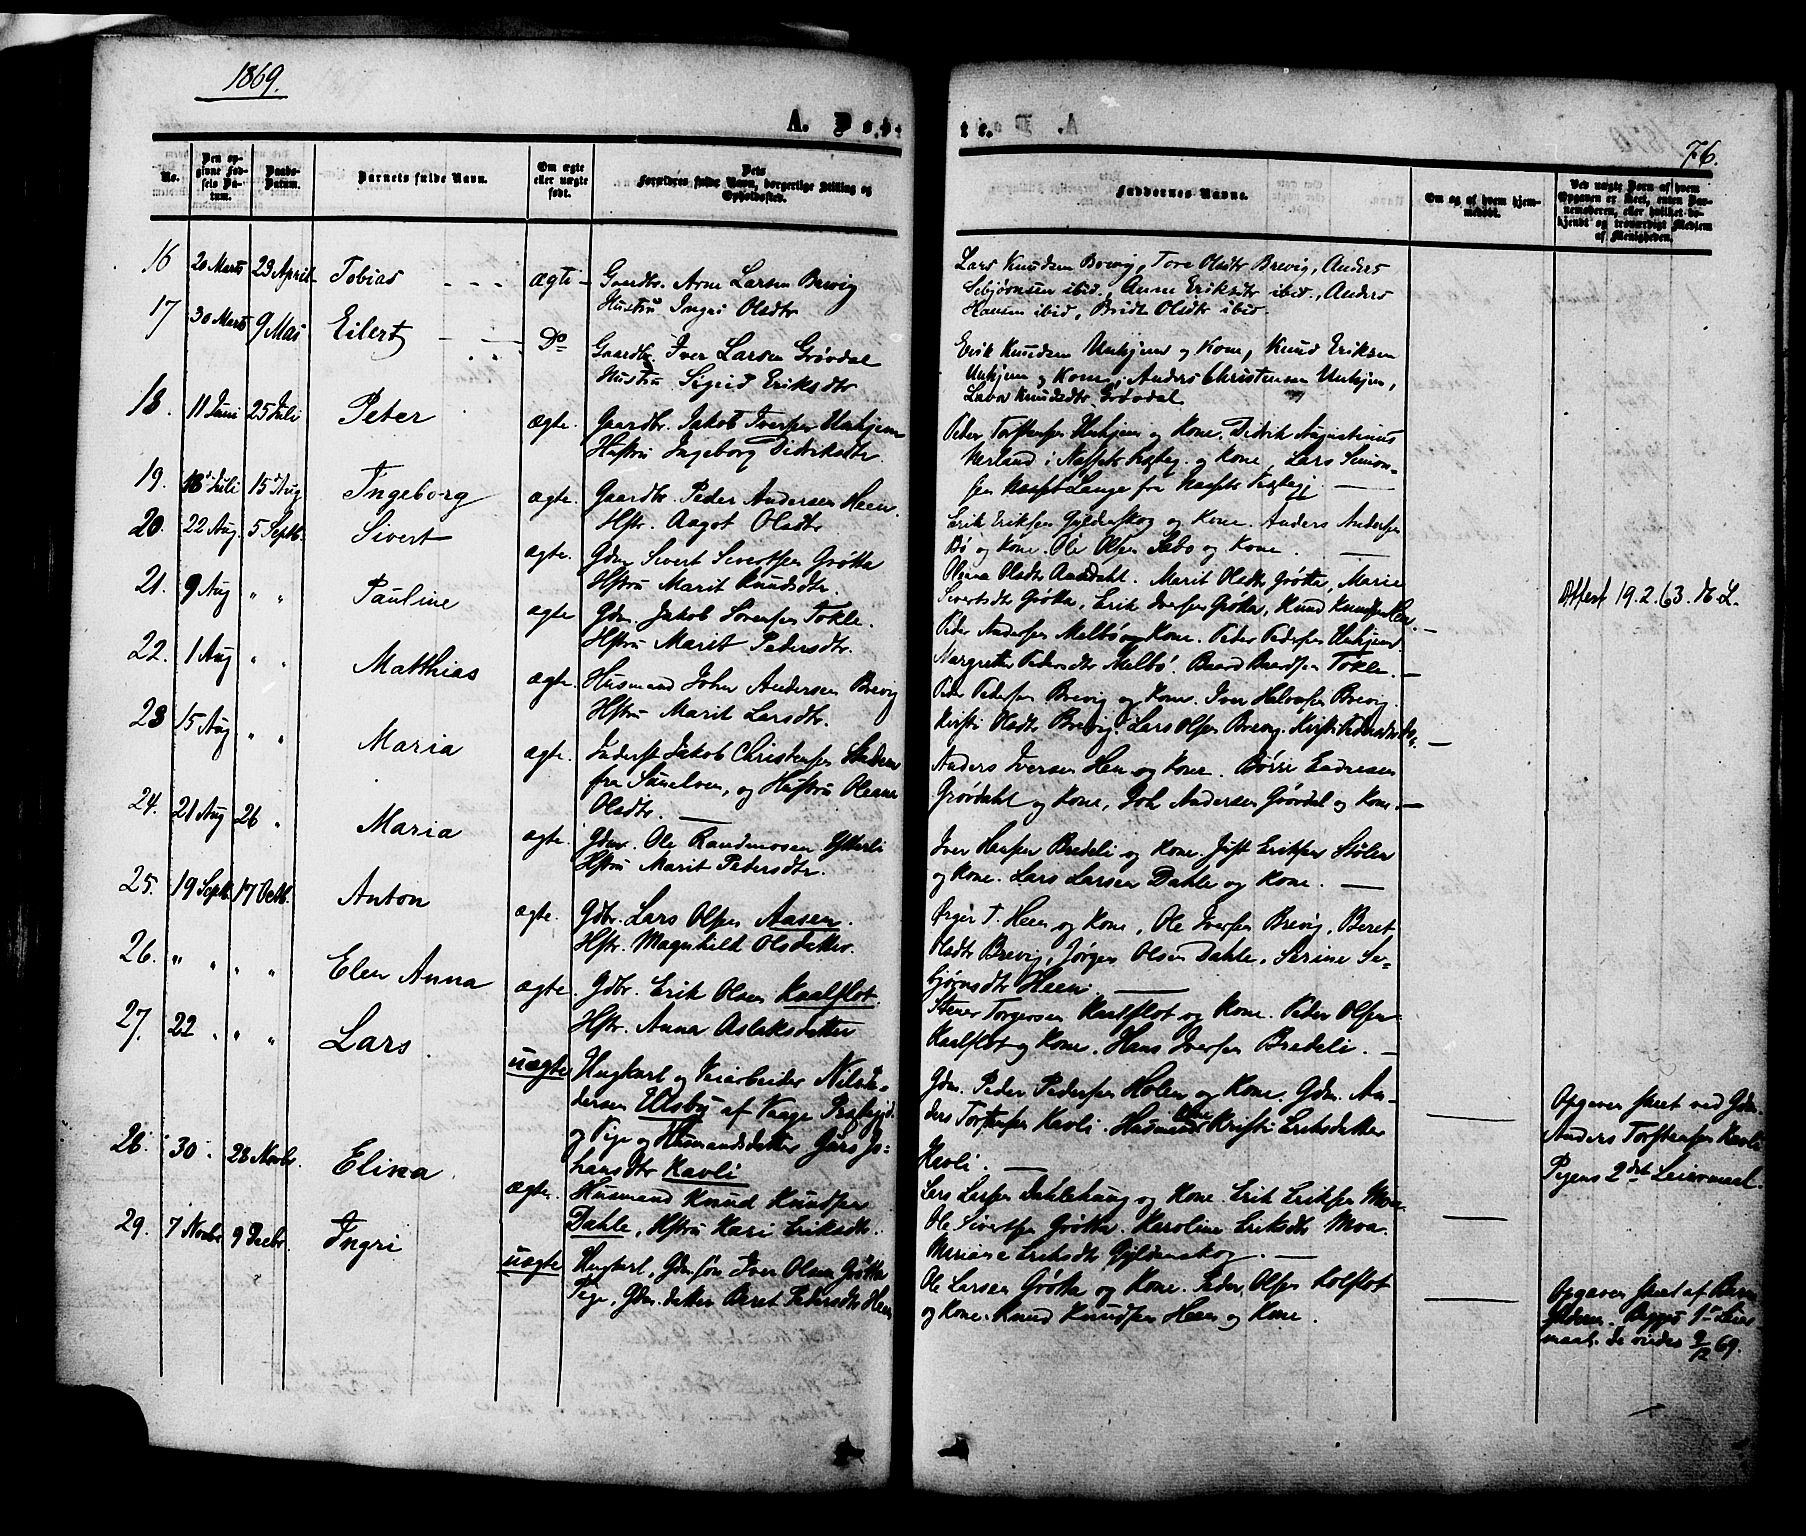 1869.
76.
A. Døbte.
No.
Den opgivne Fødsels Datum.
Daabs-Datum.
Barnets fulde Navn.
Om ægte eller uægte født.
Dets Forældres fulde Navn, borgerlige Stilling og Opholdssted.
Faddernes Navne.
Om og af hvem hjemmedøbt.
Ved uægte Børn af hvem Opgaven er skeet, enten Barnemoderen, eller hvilket bekjendt og troværdigt Medlem af Menigheden.
16 20 Marts 23 April Tobias ægte Gaardbr. Arne Larsen Brevig
Hustru Ingri Olsdtr
Lars Knudsen Brevig, Tore Olsdtr Brevig, Anders
Sebjørnsen ibid, Anne Eriksdtr ibid., Anders
Hansen ibid, Brit Olsdtr ibid.
17 30 Marts 9 Mai Eilert Do Gaardbr. Iver Larsen Grøvdal
Hustru Sigrid Eriksdtr
Erik Knudsen Unhjem og Kone, Knud Eriksen
Unhjem og Kone, Anders Christensen Unhjem,
Knudsdtr Grøvdal
18. 11 Juni 25 Juli Peter ægte. Gaardbr. Jakob Iversen Unhjem
Hustru Ingeborg Didriksdtr.
Peder Torstensen Unhjem og Kone. Didrik Augustinus
Værland i Næssets Præstegj. og Kone, Lars Simon-
sen Lange fra Næssets Præstegj.
19. 18 Juli 15 Aug Ingeborg ægte. Gaardbr. Peder Andersen Heen.
Hstr. Aagot Olsdtr
Erik Eriksen Gyldenskog og Kone. Anders Andersen
Bø og Kone. Ole Olsen Sæbø og Kone.
20. 22 Aug. 5 Septb. Sivert ægte. Gdm Sivert Sivertsen Grøtta
Hstru Marit Knudsdtr.
Olena Olsdtr Aandahl. Marit Olsdtr Grøtta, Marie
Sivertsdtr Grøtta, Erik Iversen Grøtta, Knud Knudsen Hen.
21. 9 Aug " " Pauline ægte Gdm. Jakob Sørensen Tokle.
Hstru Marit Pedersdtr.
Peder Andersen Melbø og Kone. Peder Pedersen Unhjem.
Margrethe Pedersdtr Melbø. Baard Baardsen Tokle.
Attest 19.2.63. K L.
22. 1 Aug " " Matthias ægte. Husmand John Andersen Brevig
Hstru Marit Larsdtr.
Peder Pedersen Brevig og Kone. Iver Halvorsen Brevig.
Kirsti Olsdtr Brevig. Lars Olsen Brevig. Kirsti Pedersdtr
23 15 Aug " " Maria ægte. Inderst Jakob Christensen
fra Sunelven, og Hustru Oleane
Olsdtr.
Anders Iversen Hen og Kone. Børre Endresen
Grøvdahl og Kone, Joh Andersen Grøvdal og Kone.
24. 21 Aug 26 " Maria ægte. Gdm. Ole Rasmussen Ytterli
Hstru Marit Pedersdtr.
Iver Hansen Bredeli og Kone. Just Eriksen Stølen
og Kone. Lars Larsen Dahle og Kone.
25. 19 Septb. 17 Octb. Anton ægte. Gdbr. Lars Olsen Aasen.
Hstr. Magnhild Olsdatter.
Ørger T. Heen og Kone, Ole Iversen Brevig, Beret
Olsdtr Brevig, Jørgen Olsen Dahle, Serine Se-
bjørnsdtr Heen.
26. " " " " Elen Anna ægte. Gdbr. Erik Olsen Kaalflot.
Hstr. Anna Aslaksdatter
Stener Torgersen Kaalflot og Kone. Peder Olsen
Kaalflot og Kone. Hans Iversen Bredeli.
27. 22 " " " Lars. uægte Ungkarl og Veiarbeider Nils Pe-
dersen Ulsby af Vaage Præstegjd.
og Pige og Husmandsdatter Guro Jo-
hansdtr Kavli
Gdm. Peder Pedersen Holen og Kone. Gdm. An-
ders Torstensen Kavli. Husmand Kristi Eriksdatter
Kavli.
Opgaven skeet ved Gdm.
Anders Torstensen Kavli
Pigens 2det Leiermaal.
28. 30 " 28 Novbr. Elina ægte. Husmand Knud Knudsen
Dahle, Hstru Kari Eriksdtr.
Lars Larsen Dahlehaug og Kone. Erik Eriksen Moa.
Ole Sivertsen Grøtta. Karoline Eriksdtr Moa.
Mariane Eriksdtr Gyldenskog.
29. 7 Novbr 9 Decbr. Ingri uægte Ungkarl, Gdm.søn Iver Olsen Grøtta
Pige, Gdm.datter Beret Pedersdtr Heen
Ole Larsen Grøtta og Kone. Peder Olsen Kolflot
og Kone. Knud Knudsen Heen og Kone.
Opgaven skeet af Barne-
faderen. Begges 1ste Leier-
maal. De viedes 9/12 69.